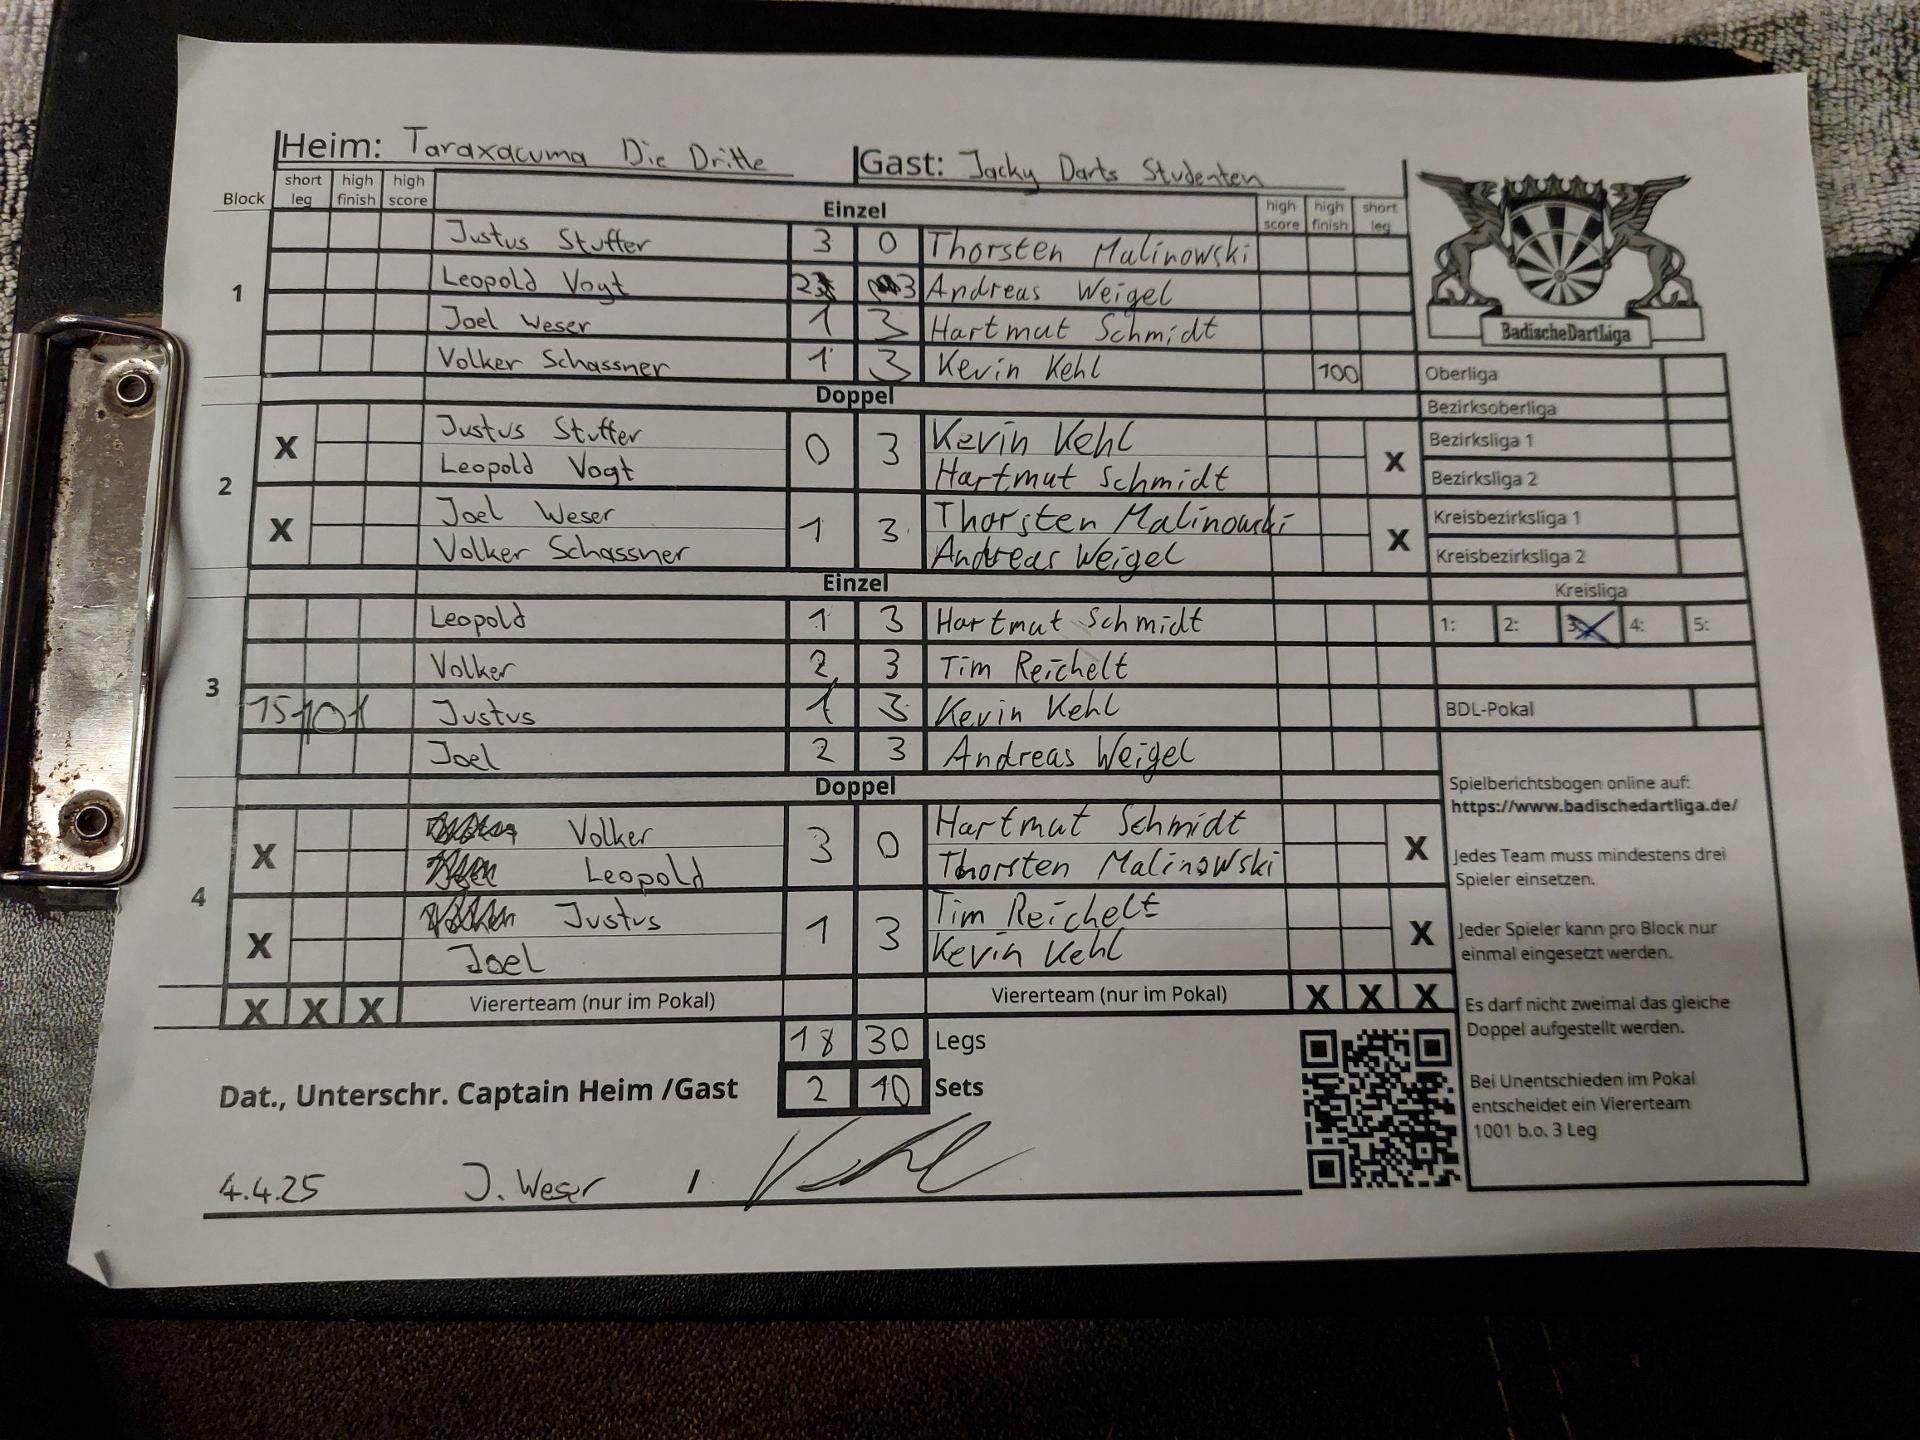 Heim: Taraxacuma Die Dritte Gast: Jacky Darts Studenten
Block short leg high finish high score Einzel high score high finish short leg
1
Justus Stuffer 3 0 Thorsten Malinowski
Leopold Vogt 2 3 Andreas Weigel
Joel Weser 1 3 Hartmut Schmidt
Volker Schassner 1 3 Kevin Kehl 100
Doppel
2
X Justus Stuffer 0 3 Kevin Kehl X
Leopold Vogt Hartmut Schmidt
X Joel Weser 1 3 Thorsten Malinowski X
Volker Schassner Andreas Weigel
Einzel
3
Leopold 1 3 Hartmut Schmidt
Volker 2 3 Tim Reichelt
Justus 1 3 Kevin Kehl
Joel 2 3 Andreas Weigel
Doppel
4
X Volker 3 0 Hartmut Schmidt X
Leopold Thorsten Malinowski
X Justus 1 3 Tim Reichelt X
Joel Kevin Kehl
X X X Viererteam (nur im Pokal) Viererteam (nur im Pokal) X X X
18 30 Legs
2 10 Sets
Dat., Unterschr. Captain Heim /Gast
4.4.25 J. Weser /
BadischeDartLiga
Oberliga
Bezirksoberliga
Bezirksliga 1
Bezirksliga 2
Kreisbezirksliga 1
Kreisbezirksliga 2
Kreisliga
1: 2: 3: 4: 5:
BDL-Pokal
Spielberichtsbogen online auf:
https://www.badischedartliga.de/
Jedes Team muss mindestens drei
Spieler einsetzen.
Jeder Spieler kann pro Block nur
einmal eingesetzt werden.
Es darf nicht zweimal das gleiche
Doppel aufgestellt werden.
Bei Unentschieden im Pokal
entscheidet ein Viererteam
1001 b.o. 3 Leg